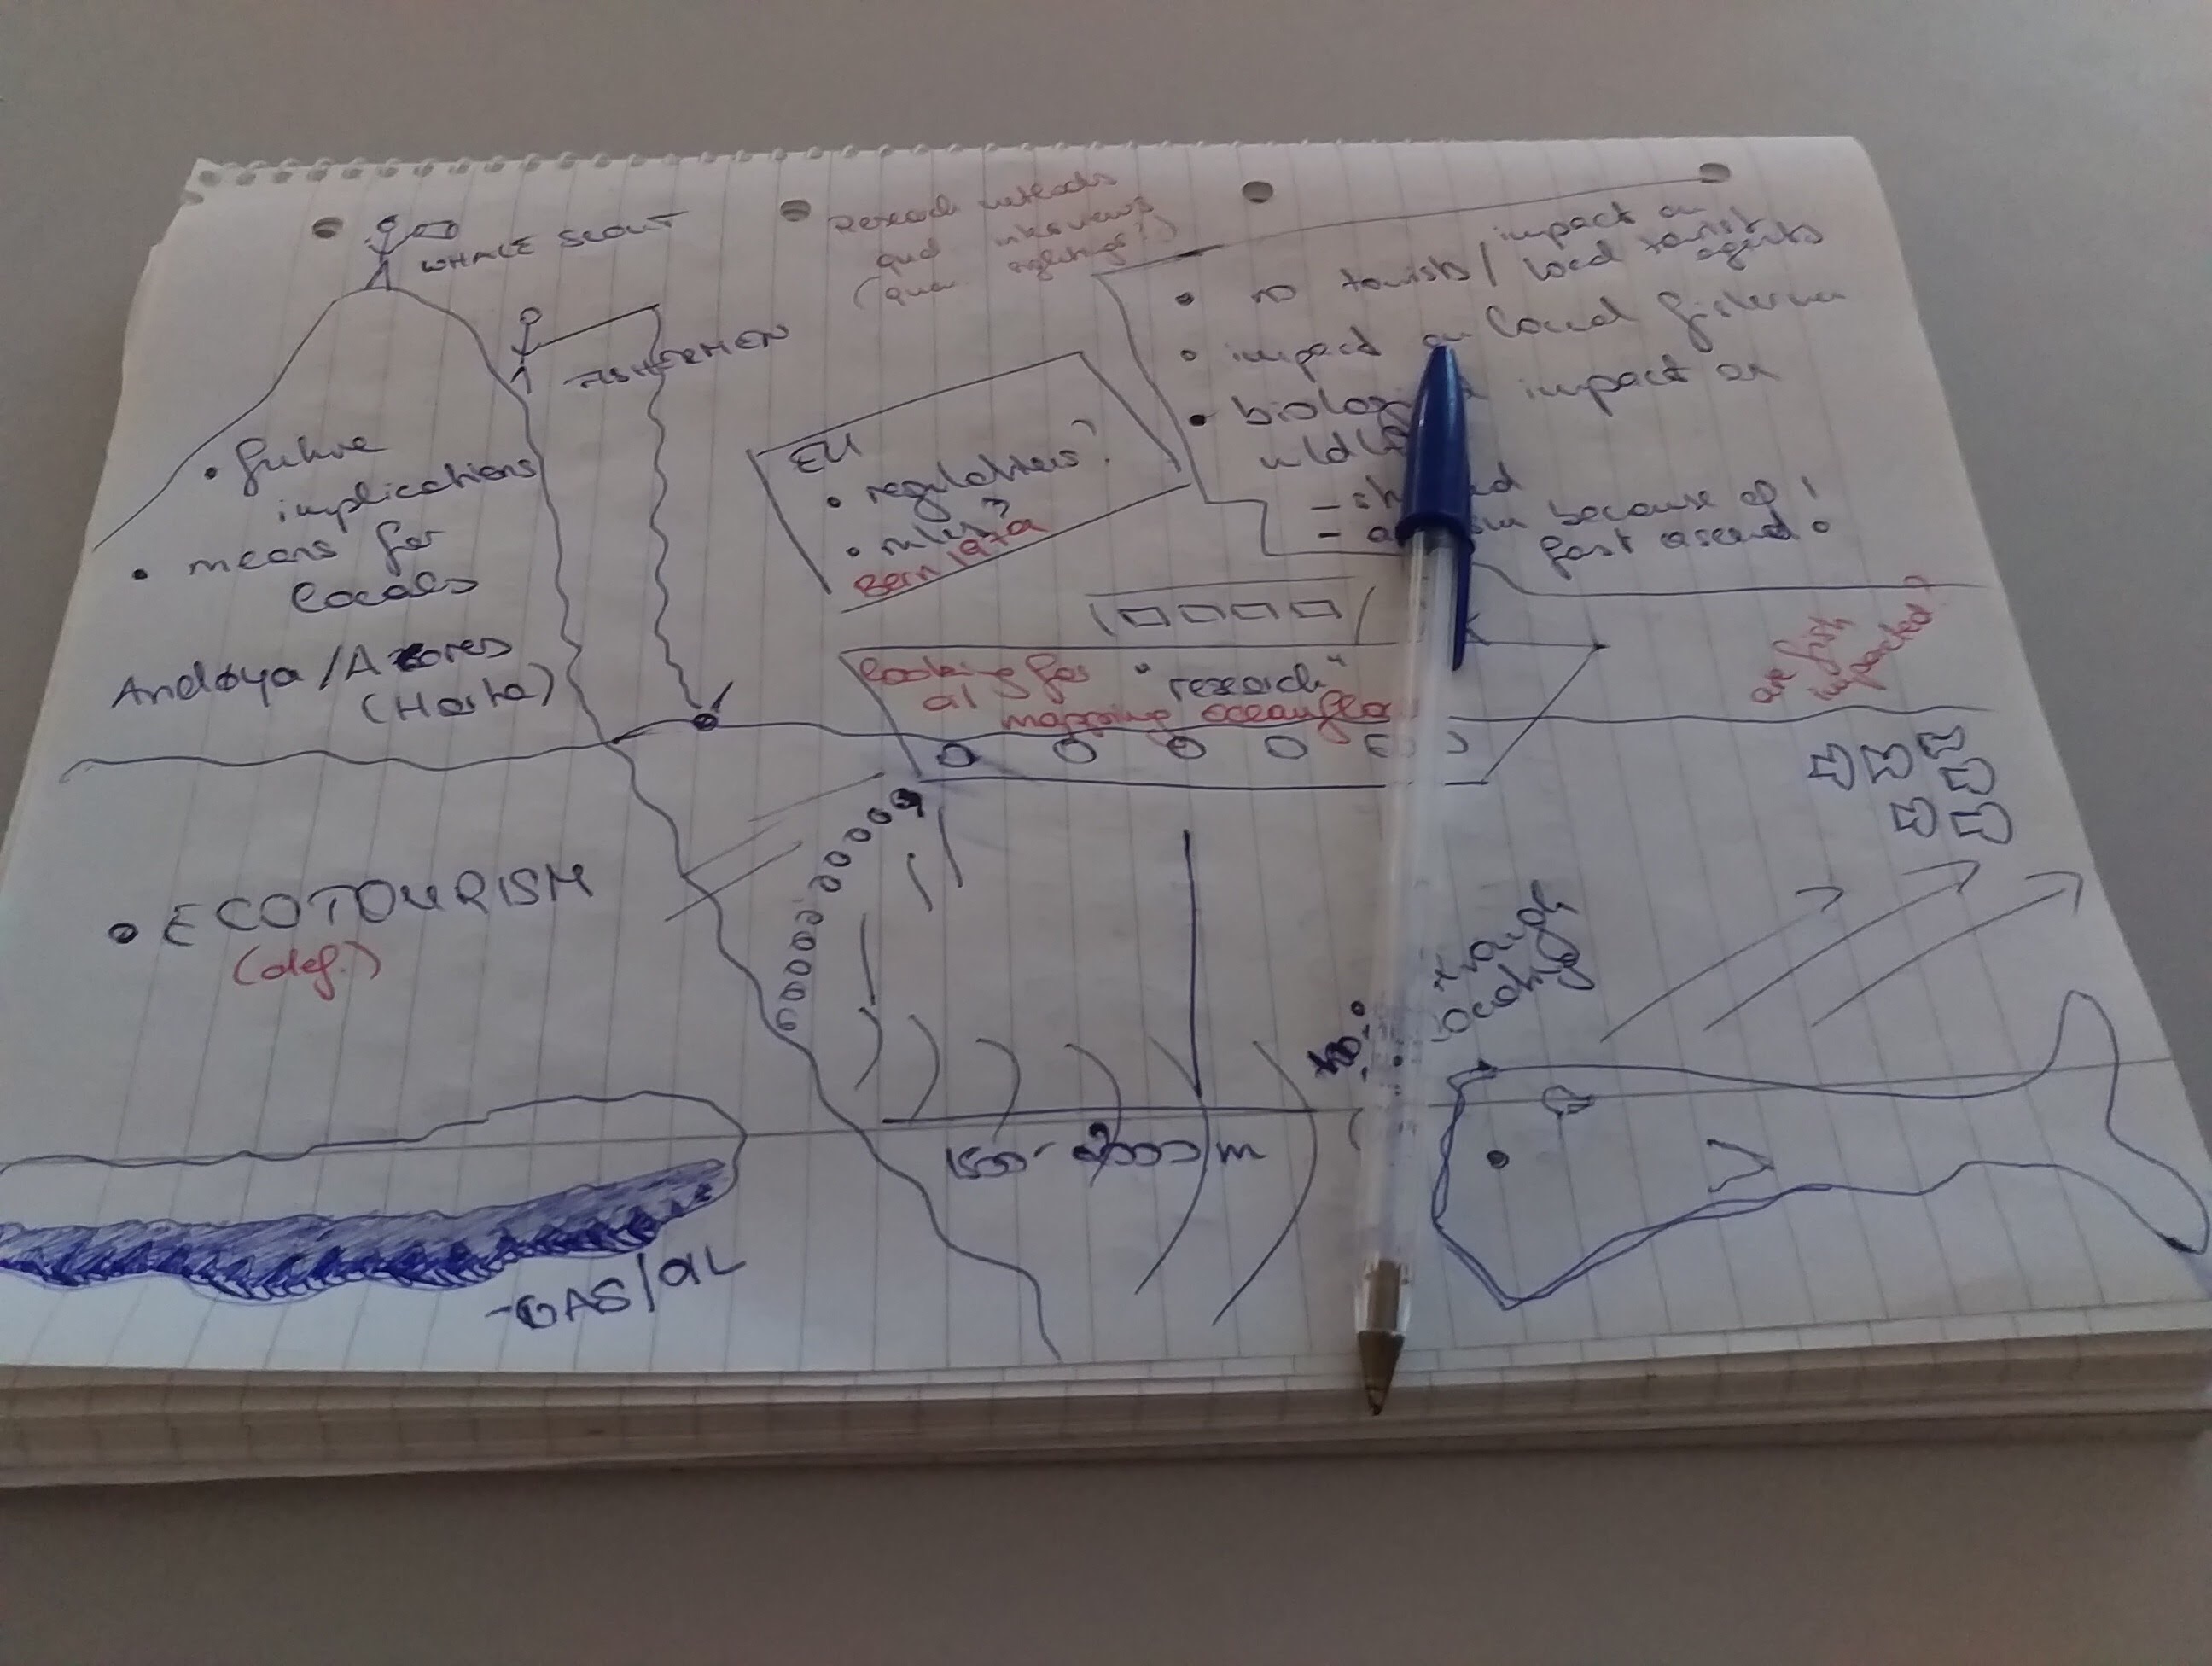 WHALE SCOUT
FISHERMEN
Research methods
and interviews
impact on
• no tourists / local tourist
agents
• impact on local fisherman
• biologic impact on
- because of !
- fast ascend
EU
• regulations?
• rules?
Bern 1979
• future
implications
• means for
locals
Andøya / Azores
(Horta)
looking for "research"
oil mapping oceanfloor
are fish
impacted?
• ECOTOURISM
(def.)
1500- 2000 m
- GAS/OIL